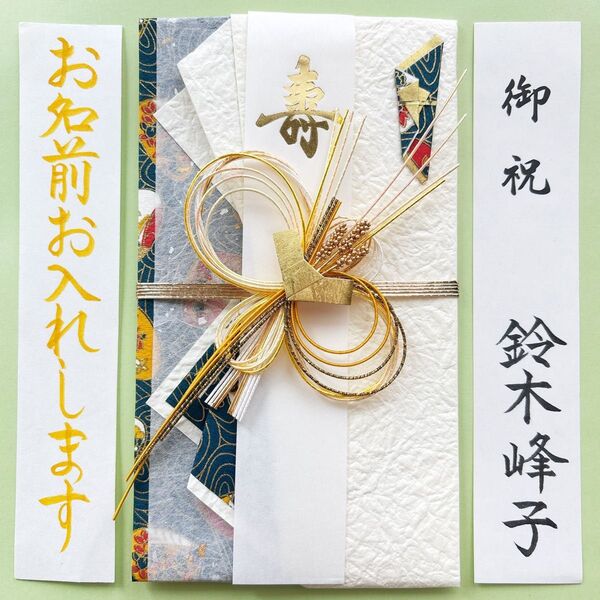 御祝
鈴木峰子
寿
お名前お入れします